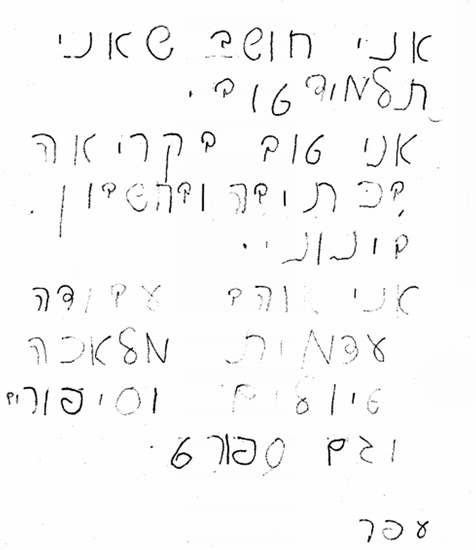 אני חושב שאני
תלמיד טוב.
אני טוב בקריאה
בכתיבה ובחשבון.
בינוני.
אני אוהב עבודה
עצמית מלאכה
טיולים וסיפורים
וגם ספורט.
עפר